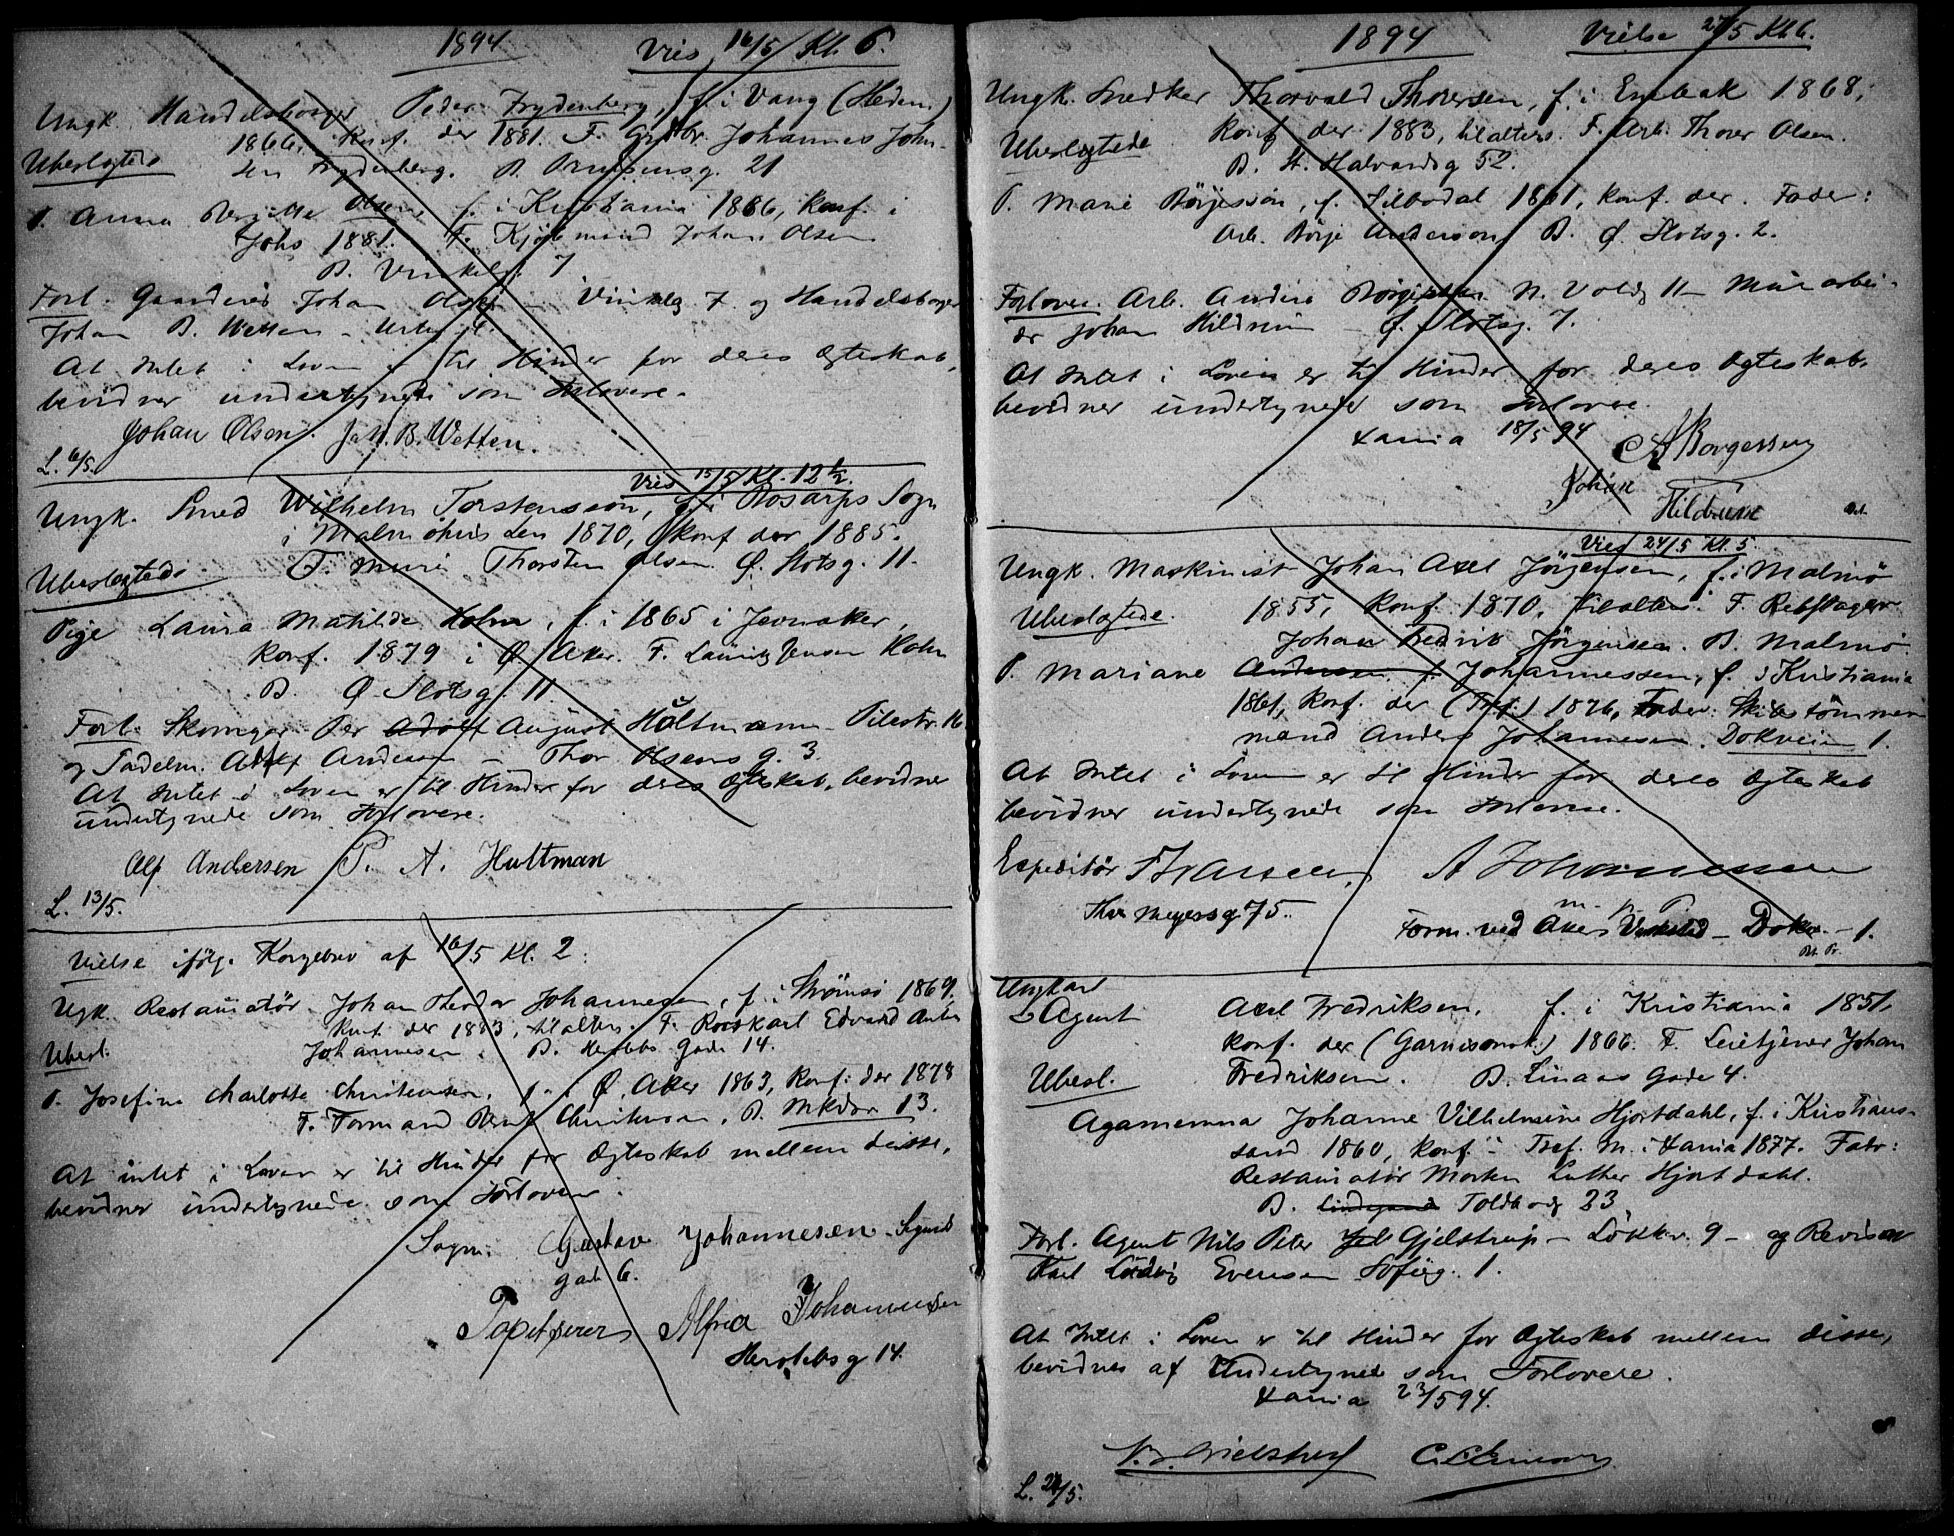 1894
Vies 16/5 Kl. 6.
Ungk. Handelsborger Peder Frydenberg, f. i Vang (Hedem.)
1866, Konf. der 1881. F. Grdbr. Johannes John-
Ubeslegtede sen Frydenberg. B. 21
P. Anna Olsen f. i Kristiania 1866, konf. i
Johs 1881. F. Kjøbmand Johan Olsen
B. Vinkelg. 7
Forl. Gaardeier Johan Olsen – Vinkelg 7 og Handelsborger
Johan B. Wetten –
At Intet i Loven er til Hinder for deres Ægteskab,
bevidner undertegnede som Forlovere.
Johan Olsen. Joh. B. Wetten.
L. 6/5.
Vies 15/5 Kl. 12 1/2.
Ungk. Smed Wilhelm Torstensson, f. i Rosarps Sogn
i Malmøhus Len 1870, konf der 1885.
Ubeslegtede. F. Murer Thorsten Olsen. Ø. Slotsg. 11.
Pige Laura Matilde Holm, f. i 1865 i Jevnaker,
konf. 1879 i Ø. Aker. F. Lauritz Jensen Holm
B. Ø. Slotsg. 11
Forl. Skomager Per Adolf August Hultmann – Pilestr. 16
og Sadelm. Adolf Andersen – Thor Olsens g. 3.
At Intet i Loven er til Hinder for deres Ægteskab, bevidner
undertegnede som Forlovere.
Alf Andersen P. A. Hultman
L. 13/5.
Vielse ifølge Kongebrev af 16/5 Kl. 2:
Ugk. Restauratør Johan Theodor Johannesen, f. i Strømsø 1869,
konf. der 1883, tilalters. F. Edvard Anton
Ubesl. Johannesen. B. Herslebs Gade 14.
P. Josefine Charlotte Christensen, f. i Ø. Aker 1863, konf. der 1878
F. Formand Christensen, B. 13.
At intet i Loven er til Hinder for Ægteskab mellem disse,
bevidner undertegnede som Forlovere:
Sogn. Gustav Johannesen Sigurds
gade 6.
Tapetserer Alfred Johannesen
Herslebsg 14.

1894
Vielse 27/5 Kl. 6.
Ungk. Snedker Thorvald Thoresen, f. i Enebak 1868,
Ubeslegtede konf. der 1883, tilalters. F. Arb. Thorer Olsen.
B. St. Halvardsg 52.
P. Marie Börjesson, f. Tilbodal 1861, konf. der. Fader:
Arb. Börje Anderson B. Ø. Slotsg. 2.
Forlovere. Arb. Anders N. Voldg 11 – Murarbei-
der Johan Hildrum – Ø. Slotsg. 7.
At Intet i Loven er til Hinder for deres Ægteskab,
bevidner undertegnede som Forlovere.
Xania 18/5 94
A Borgessen
Johan
Hildrum
Vies 24/5 Kl. 5.
Ungk. Maskinist Johan Axel Jörgensen, f. i Malmø
Ubeslegtede. 1855, konf. 1870, tilalters. F. Rebslager
Johan Fredrik Jörgensen. B. Malmø.
P. Mariane Andersen f. Johannessen, f. i Kristiania
1861, konf. der (Tref.) 1876, Fader: Skibstømmer-
mand Anders Johannesen. Dokveien 1.
At Intet i Loven er til Hinder for deres Ægteskab
bevidner undertegnede som Forlovere.
Expeditør A Johannessen
Thv Meyersg 75.
m. p. P.
Form. ved Akers Verksted – Dokv. – 1.
Ungkarl
Agent Axel Fredriksen, f. i Kristiania 1851,
konf. der (Garnisonsk.) 1866. F. Leietjener Johan
Ubesl. Fredriksen. B. Linaas Gade 4.
Agamemna Johanne Vilhelmine Hjortdahl, f. i Kristians-
sand 1860, konf. i Tref. M. i Xania 1877. Fader:
Restauratør Morten Luther Hjortdahl.
B. Toldbodg 23
Forl. Agent Nils Peter Gjelstrup – Løkkv. 9 – og Revisor
Karl Ludvig Evensen Sofieg. 1.
At Intet i Loven er til Hinder for Ægteskab mellem disse,
bevidnes af Undertegnede som Forlovere.
Xania 23/5 94.
L. 24/5.